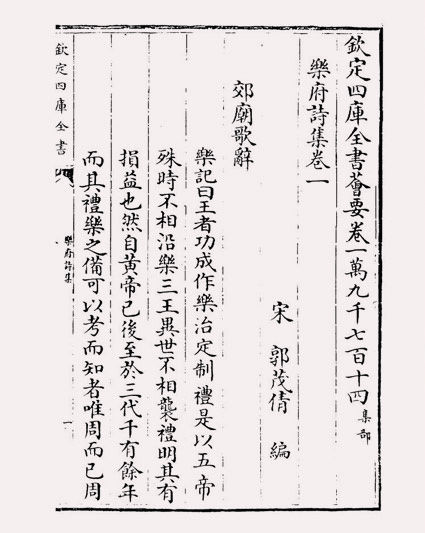 欽定四庫全書薈要卷一萬九千七百十四集部
樂府詩集卷一
宋 郭茂倩 編
郊廟歌辭
樂記曰王者功成作樂治定制禮是以五帝
殊時不相沿樂三王異世不相襲禮明其有
損益也然自黃帝已後至於三代千有餘年
而其禮樂之備可以考而知者唯周而已周
欽定四庫全書
樂府詩集
一